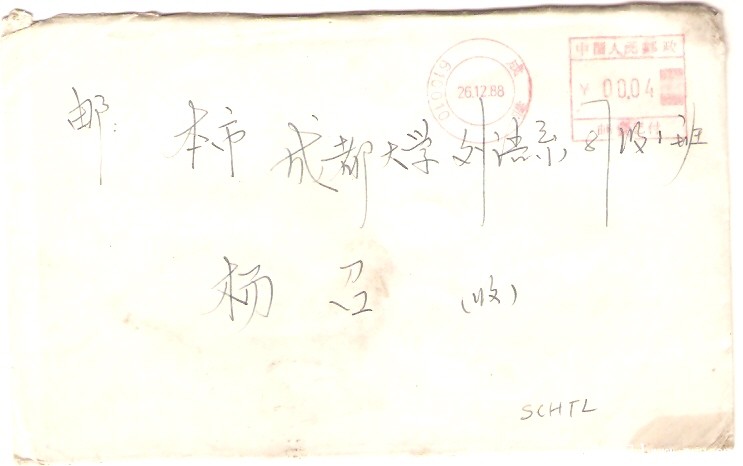 中国人民邮政
610010 成都
26.12.88
¥ 00.04
邮: 本市 成都大学外语系87级1班
杨 召 (收)
SCHTL